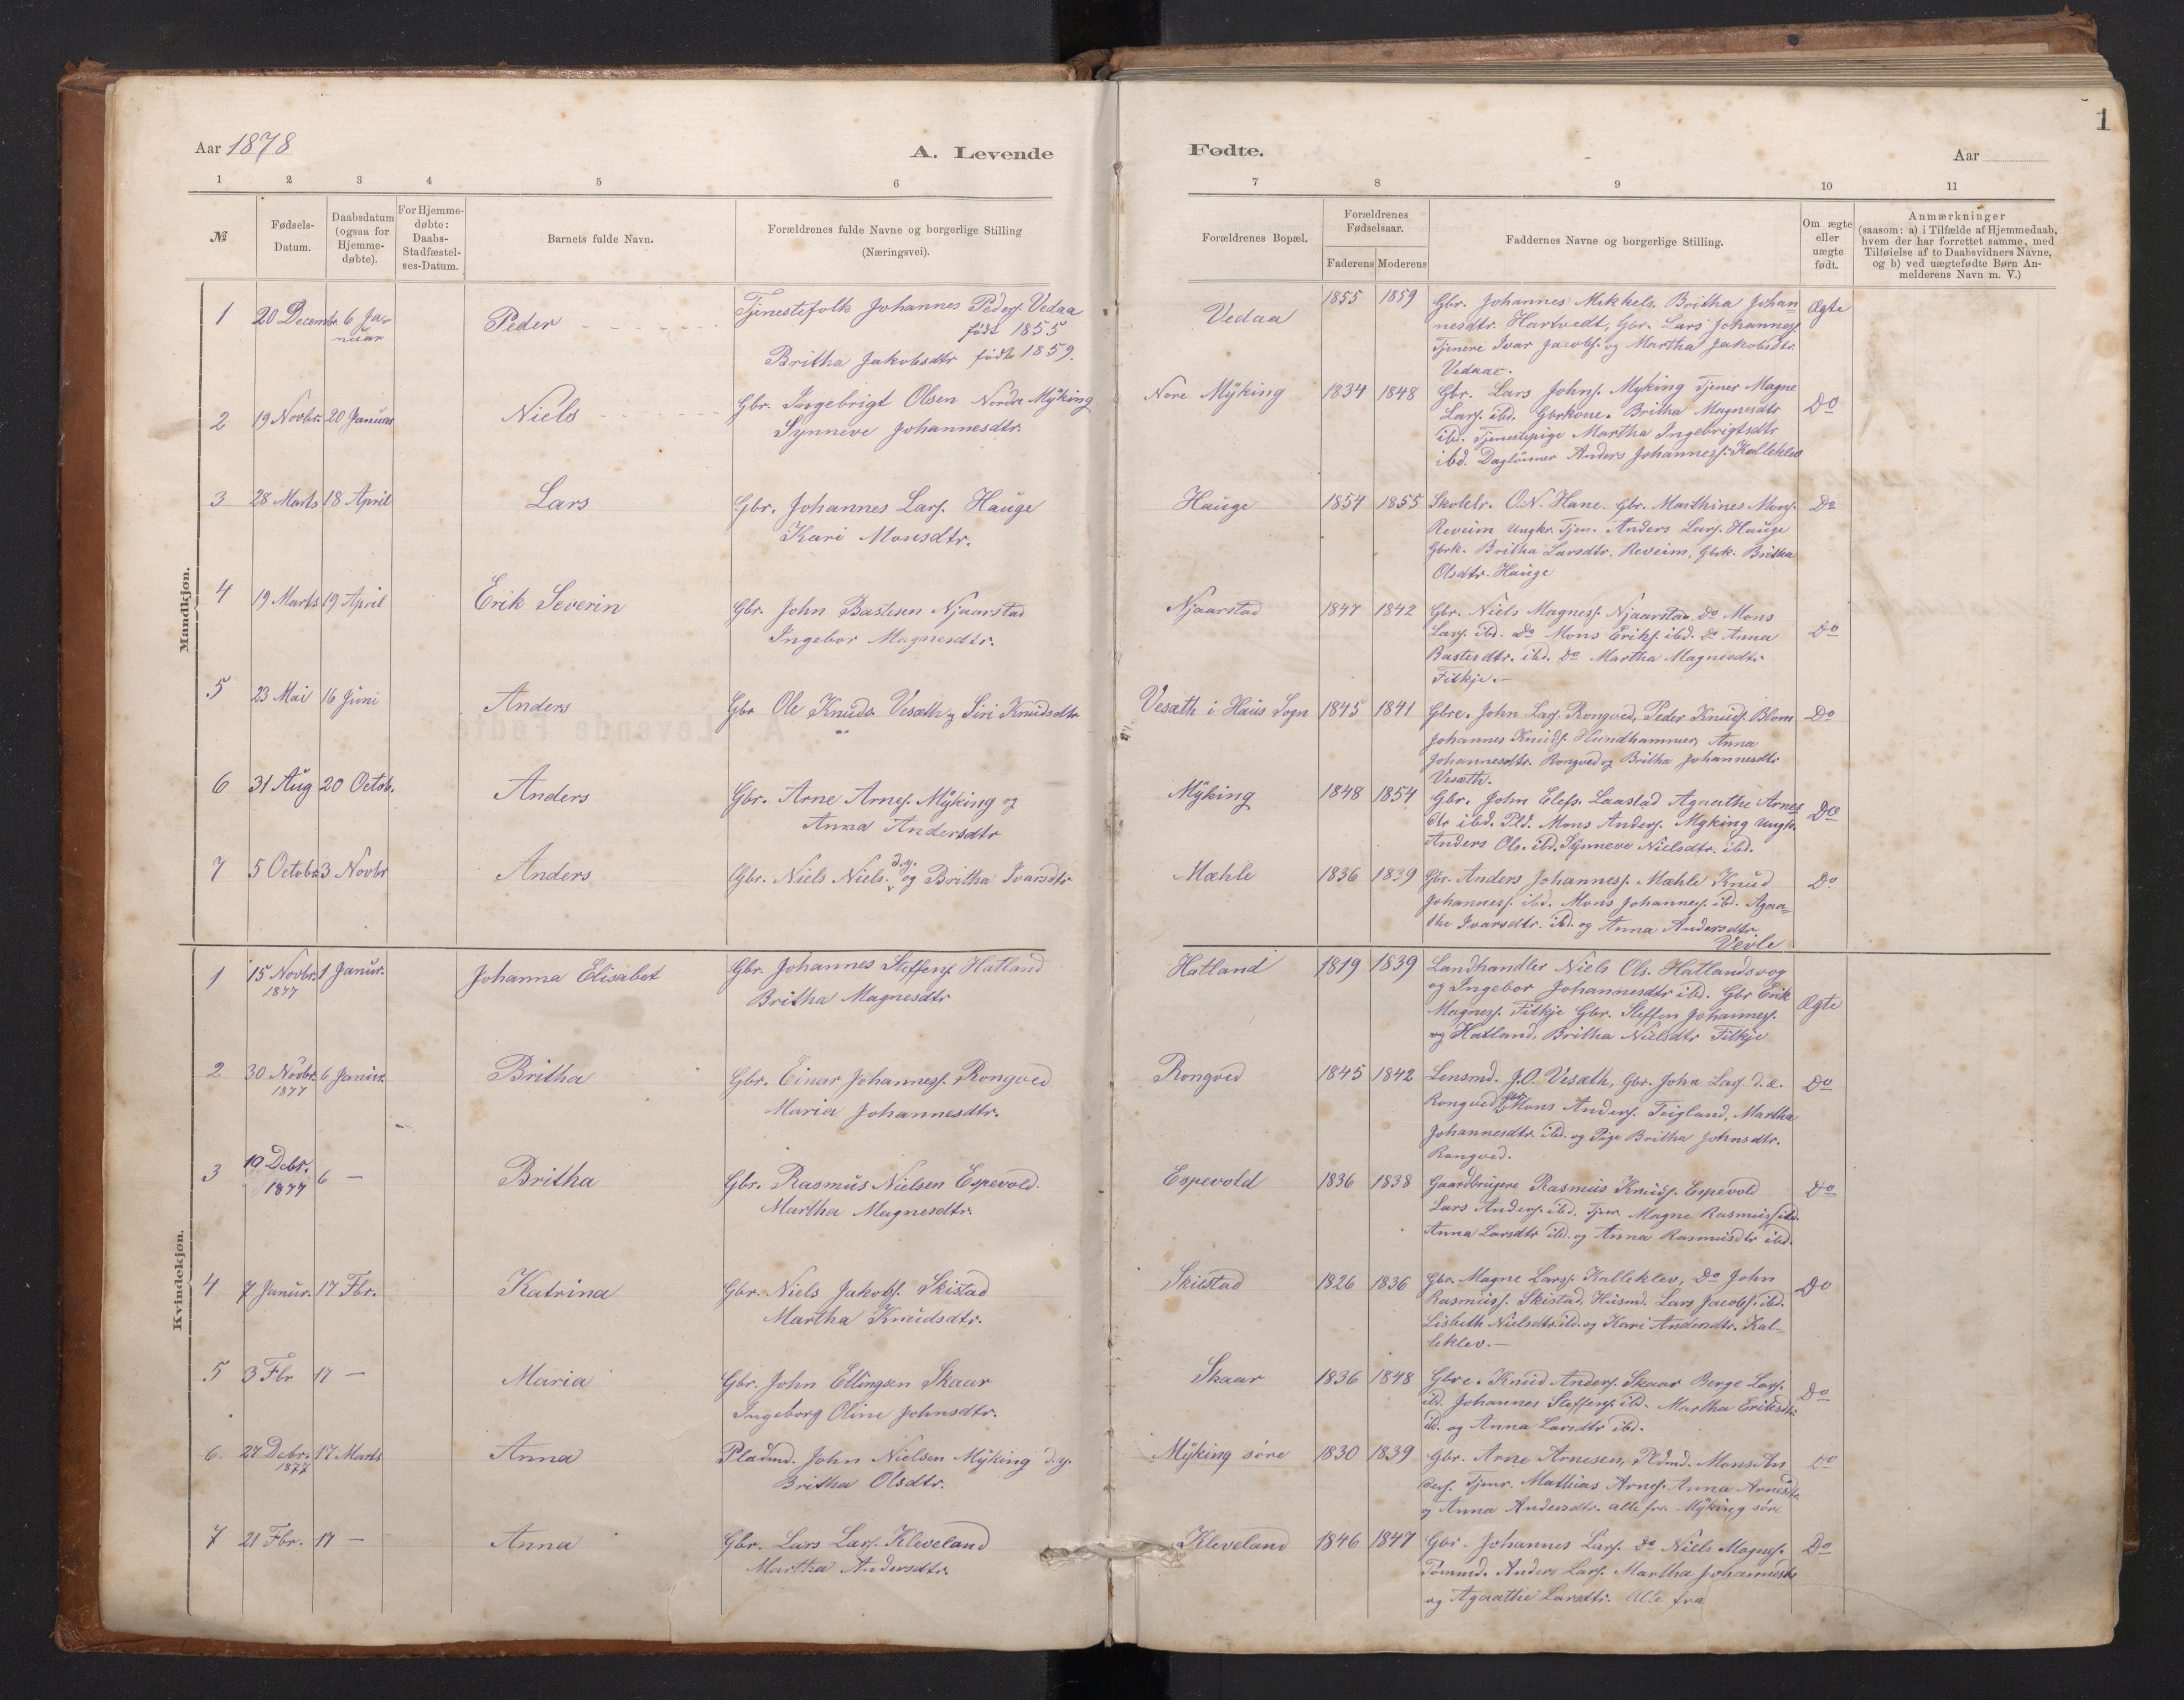 1
Aar 1878
A. Levende
Fødte.
Aar
1 2 3 4 5 6 7 8 9 10 11
№
Fødsels-
Datum.
Daabsdatum
(ogsaa for
Hjemme-
døbte).
For Hjemme-
døbte:
Daabs-
Stadfæstel-
ses-Datum.
Barnets fulde Navn.
Forældrenes fulde Navne og borgerlige Stilling
(Næringsvei).
Forældrenes Bopæl.
Forældrenes
Fødselsaar.
Faderens Moderens
Faddernes Navne og borgerlige Stilling.
Om ægte
eller
uægte
født.
Anmærkninger
(saasom: a) i Tilfælde af Hjemmedaab,
hvem der har forrettet samme, med
Tilføielse af to Daabsvidners Navne,
og b) ved uægtefødte Børn An-
melderens Navn m. V.)
Mandkjøn.
1
20 Decembr
6 Ja-
nuar
Peder
Tjenestefolk Johannes Peders. Vedaa
født 1855
Britha Jakobsdtr født 1859.
Vedaa
1855 1859
Gbr. Johannes Mikkels. Britha Johan
nesdtr. Hartvedt, Gbr. Lars Johanness.
Tjenere Ivar Jacobs. og Martha Jakobsdtr.
Vedaae.
Ægte
2
19 Novbr. 20 Januar
Niels
Gbr. Ingebrigt Olsen Nordre Myking
Synneve Johannesdtr.
Nore Myking
1834 1848
Gbr. Lars Johns. Myking Tjener Magne
Lars. ibd. Gbrkone. Britha Magnesdtr
ibd. Tjenestepige Martha Ingebrigtsdtr
ibd. Daglönner Anders Johanness. Kalleklev
Do
3
28 Marts 18 April
Lars
Gbr. Johannes Lars. Hauge
Kari Monsdtr.
Hauge
1854 1855
Skolelr. O.N. Hane. Gbr. Marthines Mons.
Reveim Ungkr. Tjen. Anders Lars. Hauge
Gbrk. Britha Larsdtr. Reveim, Gbrk. Britha
Olsdtr. Hauge
Do
4
19 Marts 19 April
Erik Severin
Gbr. John Bastesen Njaarstad
Ingebor Magnesdtr.
Njaarstad
1847 1842
Gbr. Niels Magness. Njaarstad, Do Mons
Lars. ibd. Do Mons Eriks. ibd. Do Anna
Bastesdtr. ibd. Do Martha Magnesdtr
Titkje.
Do
5
23 Mai 16 Juni
Anders
Gbr Ole Knuds. Vesæth og Siri Knudsdtr
Vesæth i Haus Sogn
1845 1841
Gbre. John Lars. Rongved, Peder Knuds. Blom
Johannes Knuds. Hundhammer, Anna
Johannesdtr. Rongved og Britha Johannesdtr
Vesæth.
Do
6
31 Aug 20 Octob.
Anders
Gbr. Arne Arnes. Myking og
Anna Andersdtr
Myking
1848 1854
Gbr. John Elefs. Laastad Agaathe Arnes
dtr ibd. Pld. Mons Anders. Myking Ungk.
Anders Ols. ibd. Synneve Nielsdtr. ibd.
Do
7
5 Octobr 3 Novbr
Anders
Gbr. Niels Niels. d.y. og Britha Ivarsdtr
Mæhle
1836 1839
Gbr. Anders Johanness. Mæhle Knud
Johanness. ibd. Mons Johanness. ibd. Agaa-
the Ivarsdtr. ibd. og Anna Andersdtr
Vevle
Do
Kvindekjøn.
1
15 Novbr. 1 Januar.
1877
Johanna Elisabet
Gbr. Johannes Steffens. Hatland
Britha Magnesdtr
Hatland
1819 1839
Landhandler Niels Ols. Hatlandsvog
og Ingebor Johannesdtr ibd. Gbr Erik
Magness. Titkje Gbr. Steffen Johanness.
og Hatland, Britha Nielsdtr Titkje
Ægte
2
30 Novbr. 6 Januar.
1877
Britha
Gbr. Einar Johanness. Rongved
Maria Johannesdtr.
Rongved
1845 1842
Lensmd. J.O. Vesæth, Gbr. John Lars. d.æ.
Rongved Mons Anders. Teigland, Martha
Johannesdtr. ibd. og Pige Britha Johnsdtr.
Rongved.
Do
3
19 Debr. 6 —
1877
Britha
Gbr. Rasmus Nielsen Espevold.
Martha Magnesdtr.
Espevold
1836 1838
Gaardbrugere Rasmus Knuds. Espevold
Lars Anders. ibd. Tjen. Magne Rasmuss. ibd.
Anna Larsdtr ibd. og Anna Rasmusdtr ibd.
Do
4
7 Januar. 17 Fbr.
Katrina
Gbr. Niels Jakobs. Skistad
Martha Knudsdtr.
Skiestad
1826 1836
Gbr. Magne Larss. Kalleklev, Do John
Rasmuss. Skistad, Husmd. Lars Jacobs. ibd.
Lisbeth Nielsdtr. ibd. og Kari Andersdtr. Kal-
leklev.—
Do
5
3 Fbr 17 —
Maria
Gbr. John Ellingsen Skaar
Ingeborg Oline Johnsdtr.
Skaar
1836 1848
Gbre. Knud Anders. Skaar Berge Lars.
ibd. Johannes Steffens. ibd. Martha Eriksdtr
ibd. og Anna Larsdtr ibd.
Do
6.
27 Debr. 17 Marts
1877
Anna
Pladsmd. John Nielsen Myking d.y.
Britha Olsdtr.
Myking söre
1830 1839
Gbr. Arne Arnesen, Pldmd. Mons An
ders. Tjenr. Mathias Arnes. Anna Arnesdtr.
og Anna Andersdtr. alle fra Myking söre
Do
7
21 Fbr. 17 —
Anna
Gbr. Lars Lars. Kleveland
Martha Andersdtr.
Kleveland
1846 1847
Gbr. Johannes Lars. Do Niels Magnes.
Tömmd. Anders Lars. Martha Johannesdtr
og Agaathe Larsdtr. Alle fra
Do